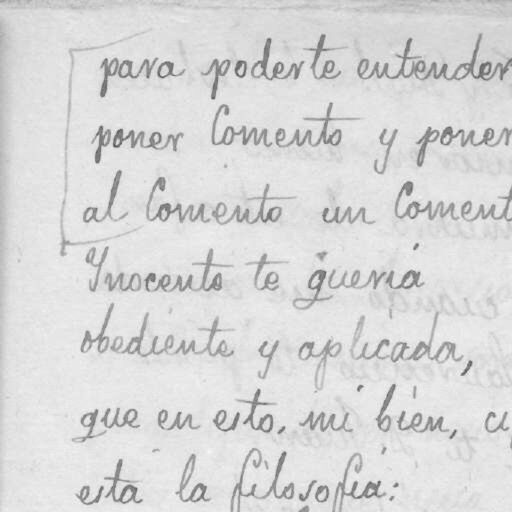 para poderte entender
poner Comento y poner
al Comento un Coment
Ynocente te queria
obediente y aplicada,
que en esto, mi bien, ci
esta la filosofia: